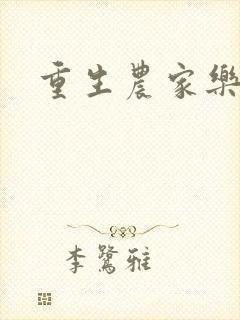 重生農家樂
李鷺雅